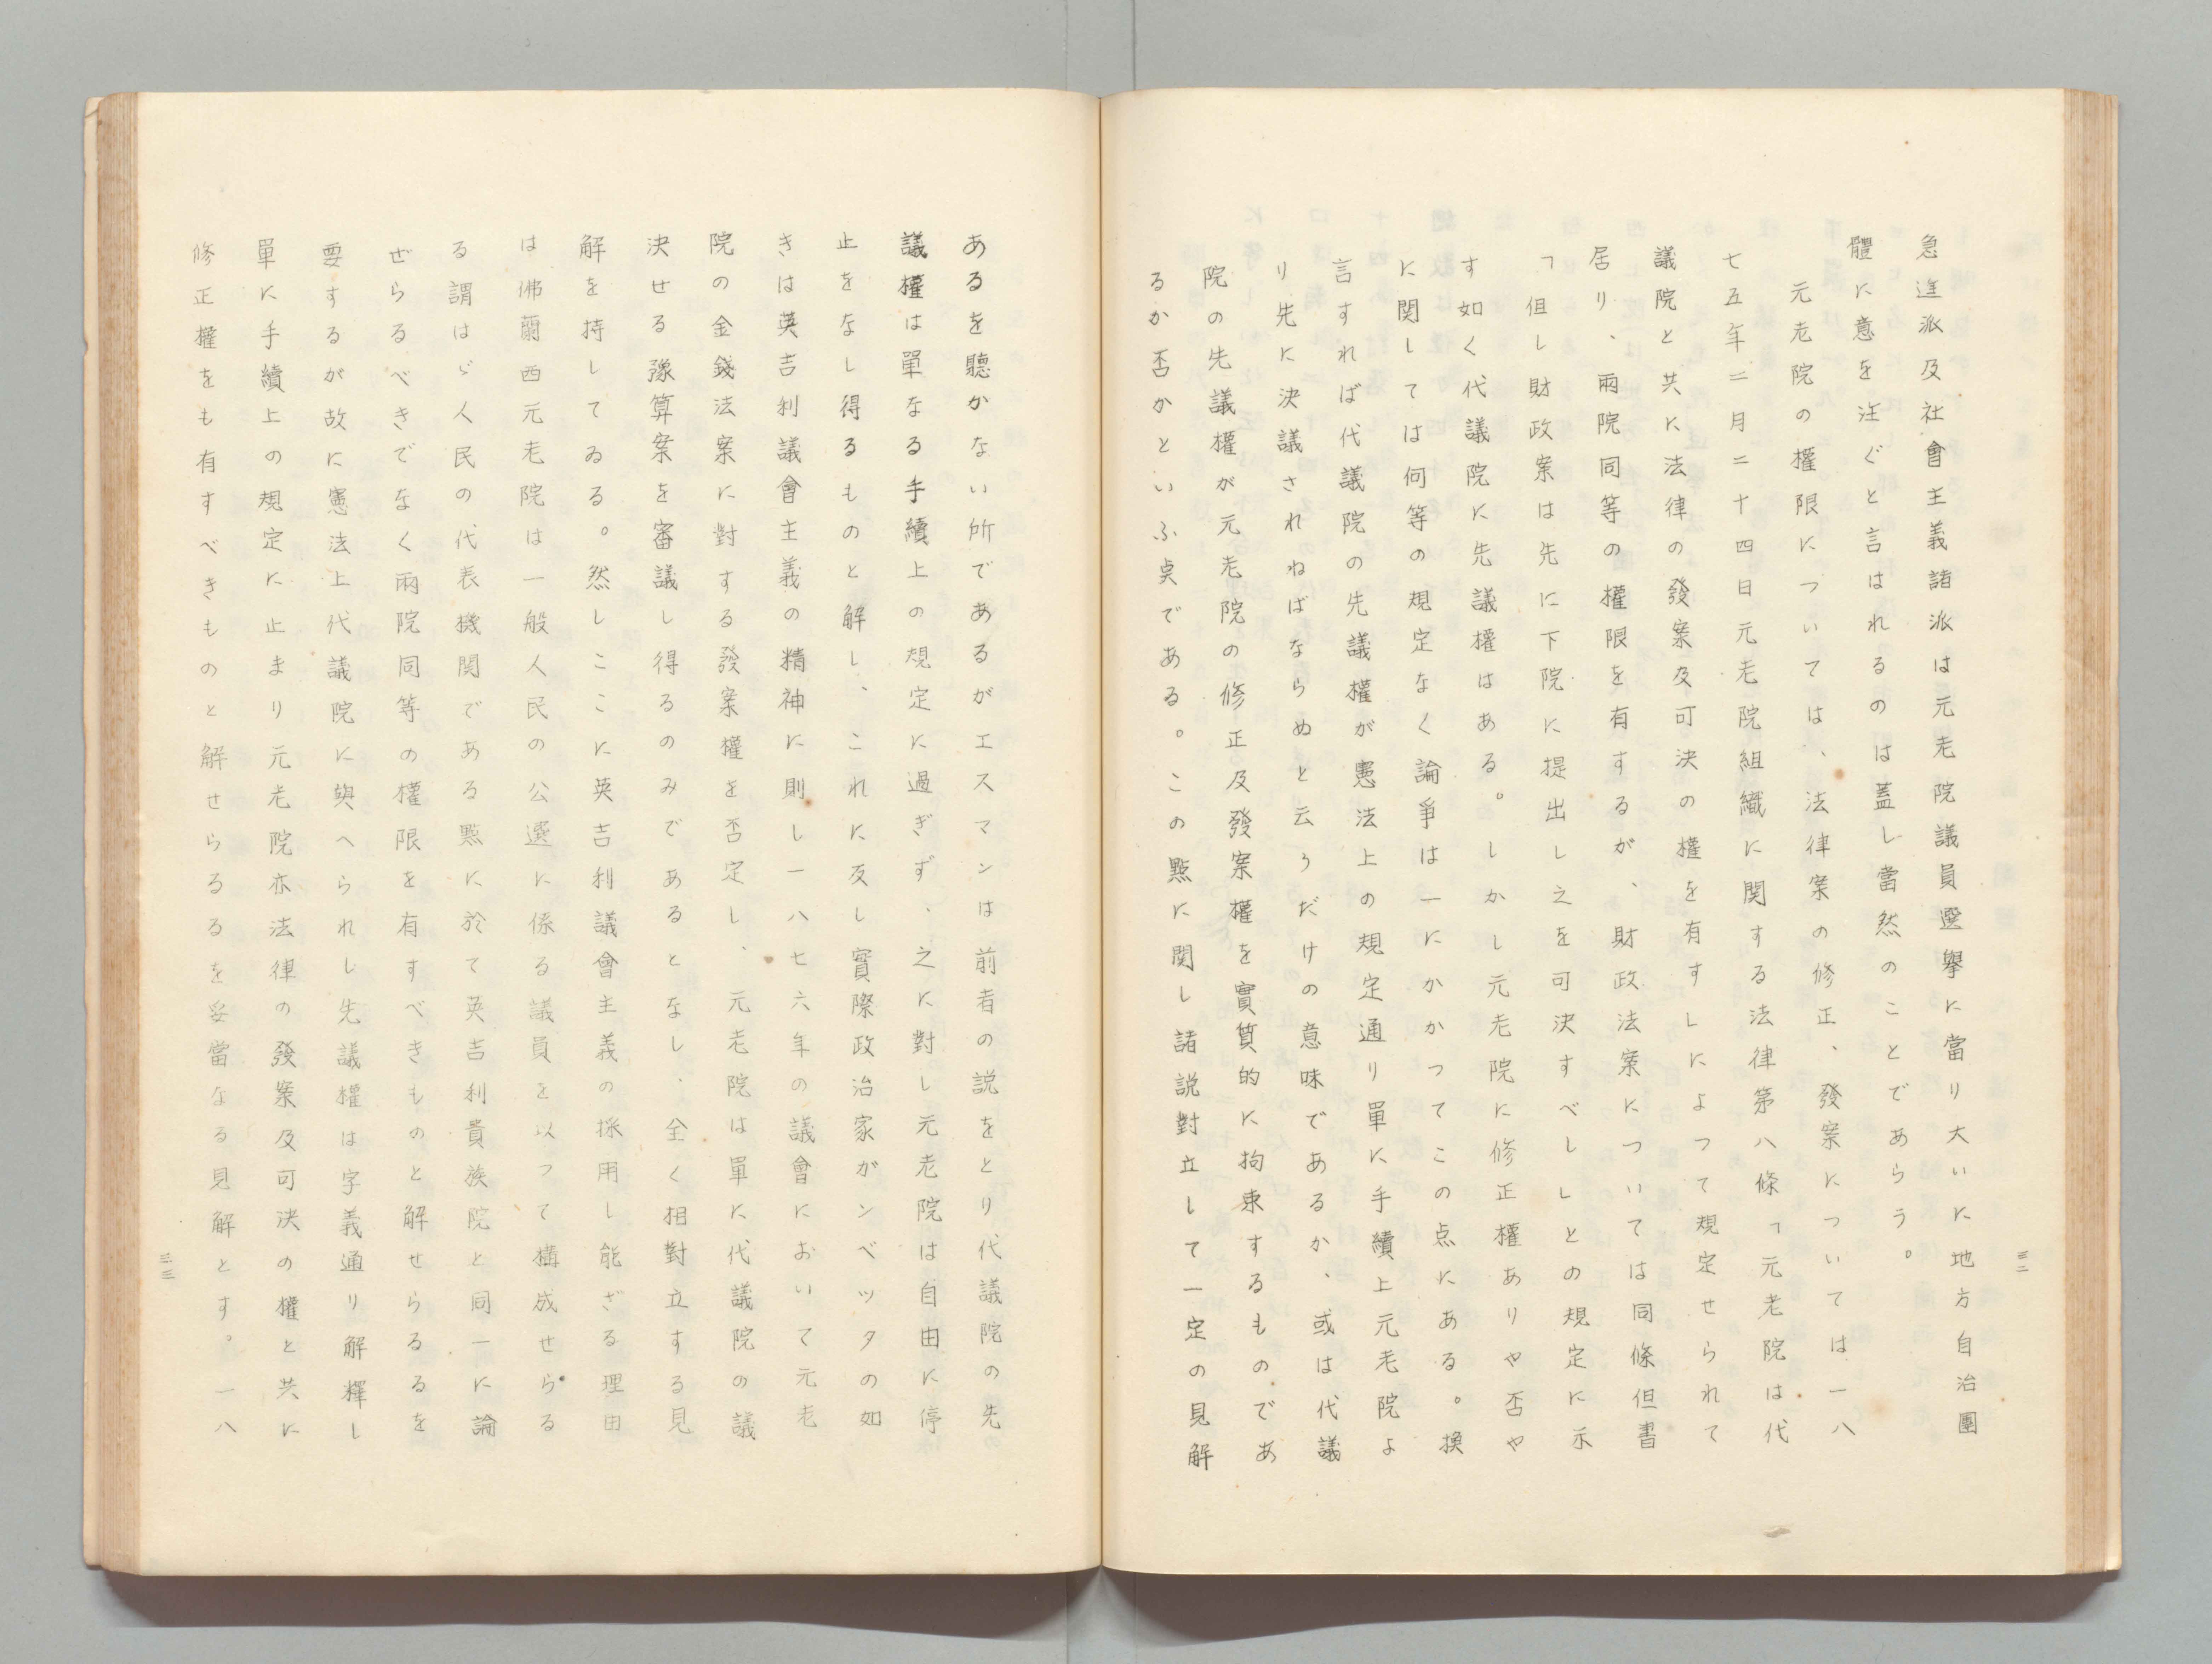 急進派及社會主義諸派は元老院議員選擧に當り大いに地方自治團
體に意を注ぐと言はれるのは蓋し當然のことであらう。
元老院の權限については、法律案の修正、發案については一八
七五年二月二十四日元老院組織に関する法律第八條「元老院は代
議院と共に法律の發案及可決の權を有す」によつて規定せられて
居り、兩院同等の權限を有するが、財政法案については同條但書
「但し財政案は先に下院に提出し之を可決すべし」との規定に示
す如く代議院に先議權はある。しかし元老院に修正權ありや否や
に関しては何等の規定なく論爭は一にかかつてこの点にある。換
言すれば代議院の先議權が憲法上の規定通り單に手續上元老院よ
り先に決議されねばならぬと云うだけの意味であるか、或は代議
院の先議權が元老院の修正及發案權を實質的に拘束するものであ
るか否かといふ点である。この點に関し諸説對立して一定の見解
三二
あるを聽かない所であるがエスマンは前者の説をとり代議院の先
議權は單なる手續上の規定に過ぎず、之に對し元老院は自由に停
止をなし得るものと解し、これに反し實際政治家がンベッタの如
きは英吉利議會主義の精神に則し一八七六年の議會において元老
院の金錢法案に對する發案權を否定し、元老院は單に代議院の議
決せる豫算案を審議し得るのみであるとなし、全く相對立する見
解を持してゐる。然しここに英吉利議會主義の採用し能ざる理由
は佛蘭西元老院は一般人民の公選に係る議員を以つて構成せらる
る謂はゞ人民の代表機関である點に於て英吉利貴族院と同一に論
ぜらるべきでなく兩院同等の權限を有すべきものと解せらるるを
要するが故に憲法上代議院に與へられし先議權は字義通り解釋し
單に手續上の規定に止まり元老院亦法律の發案及可決の權と共に
修正權をも有すべきものと解せらるるを妥當なる見解とす。一八
三三